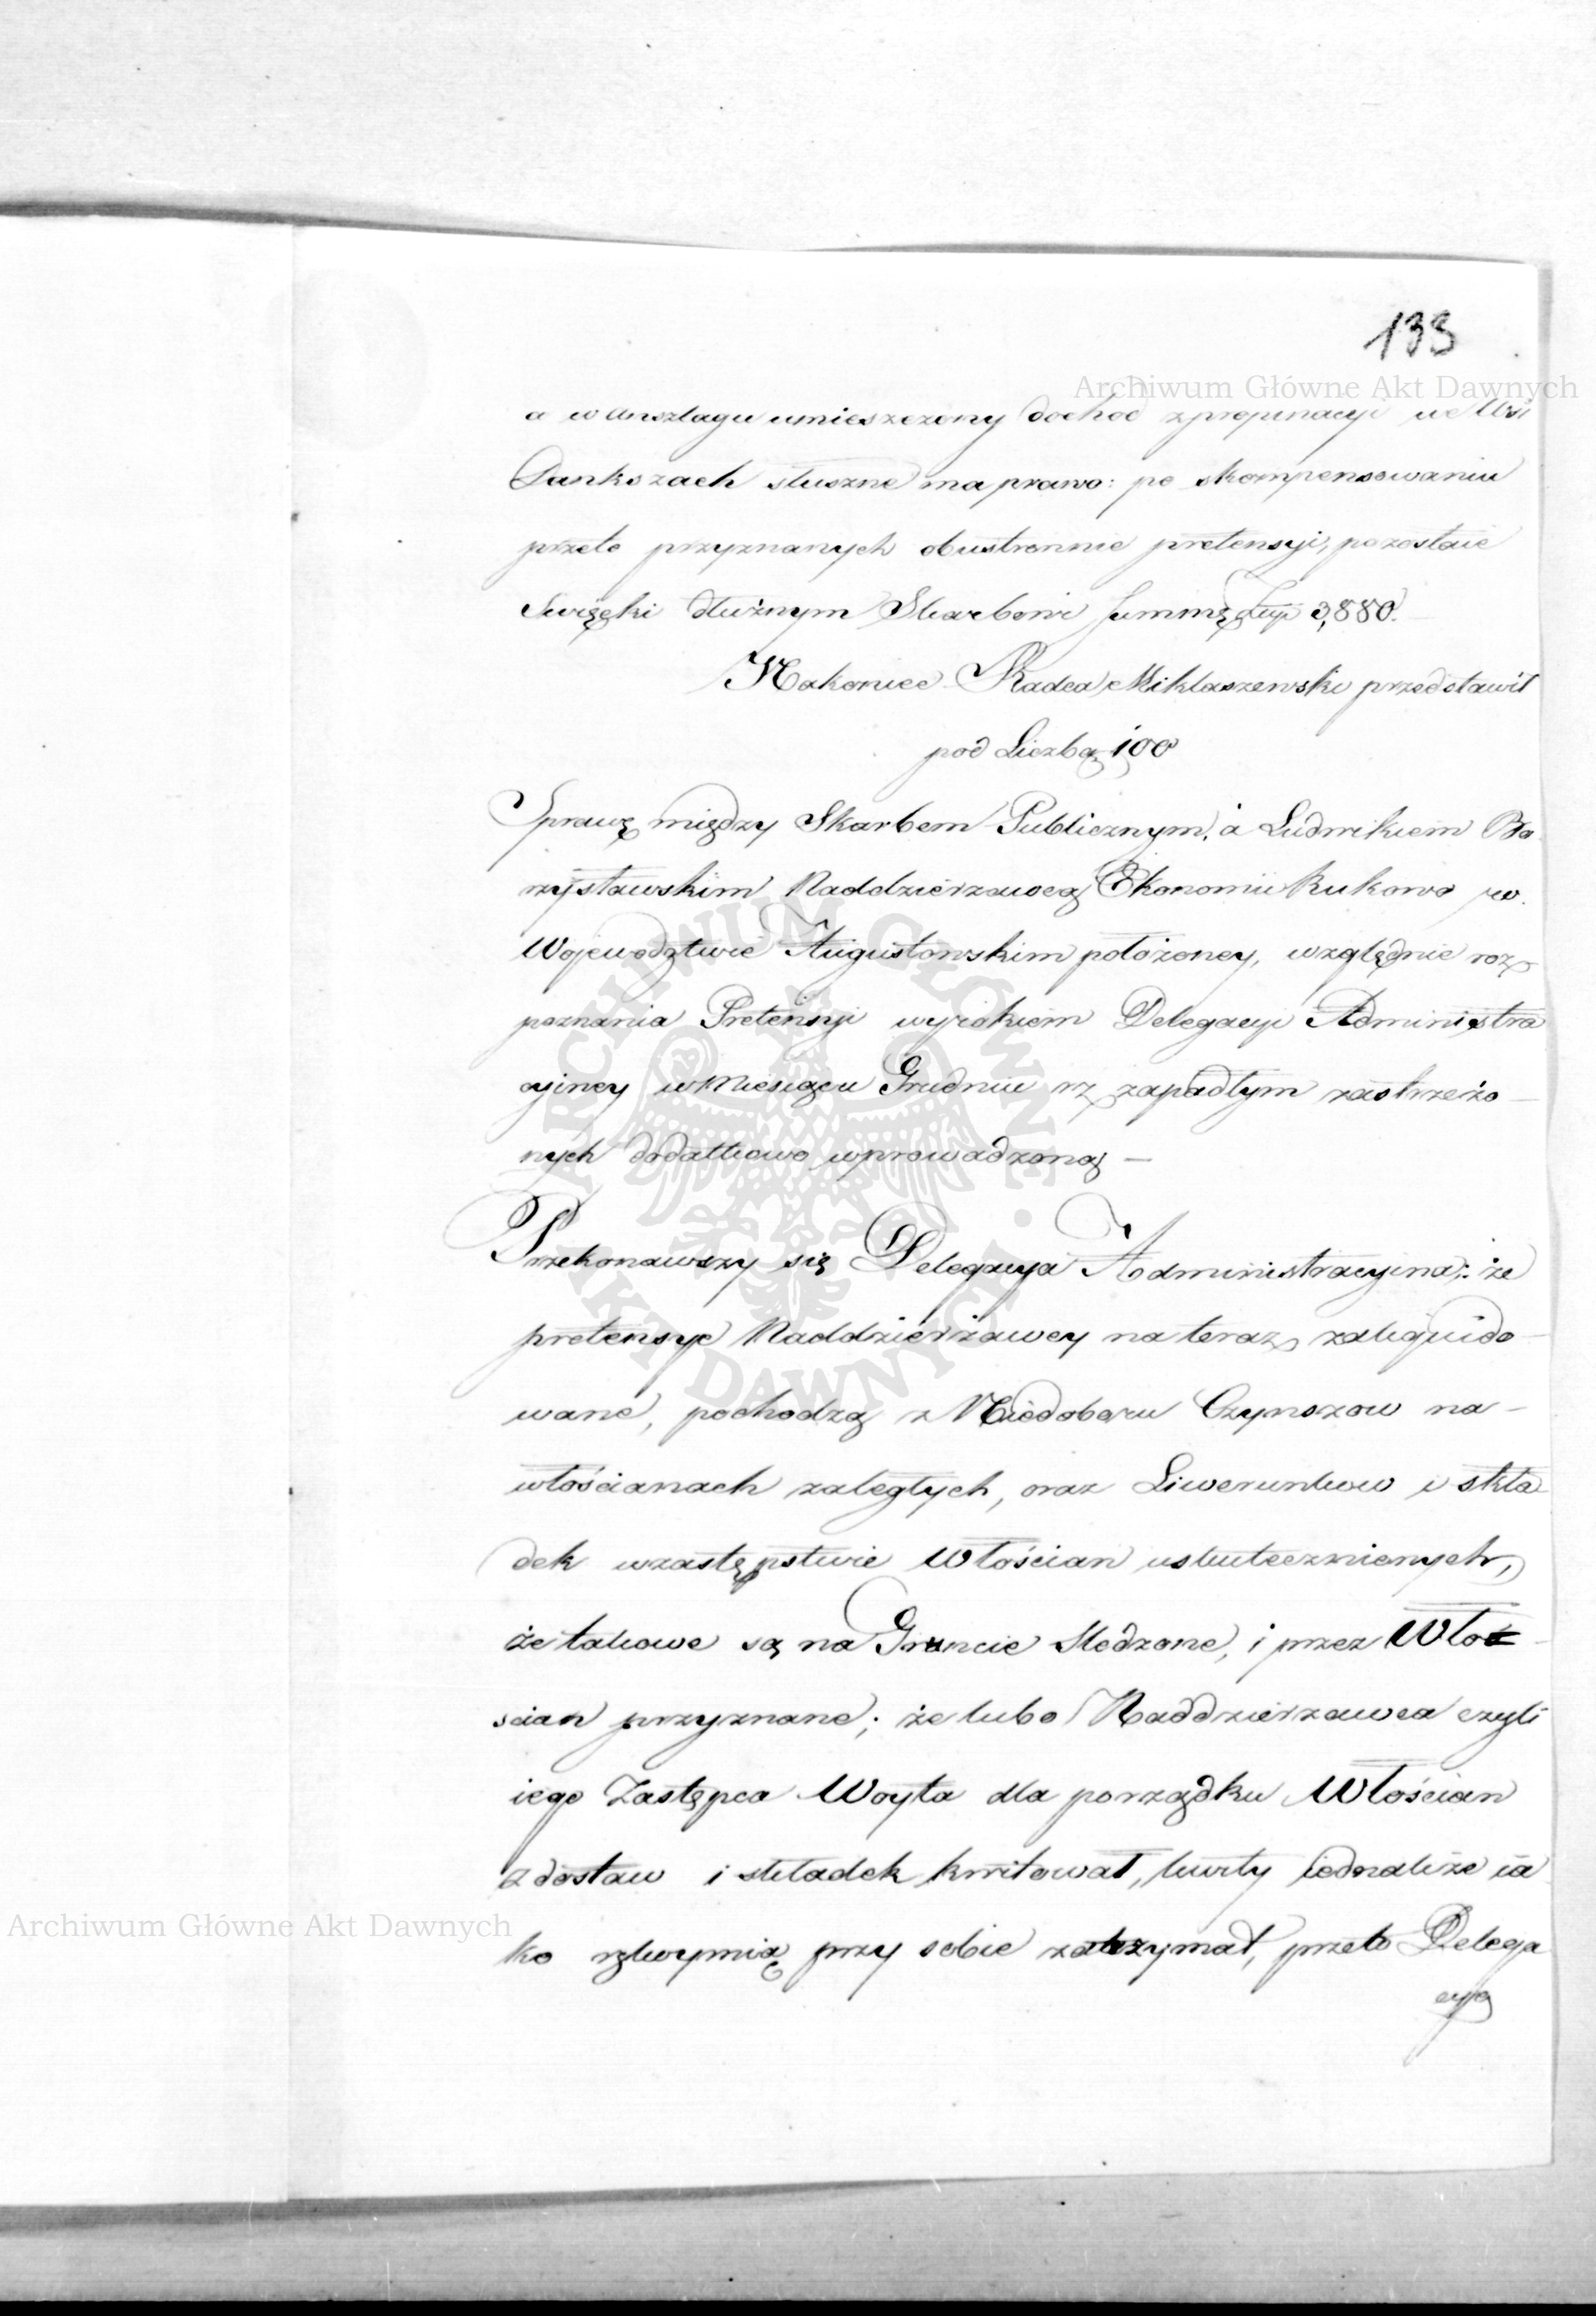 133
Archiwum Główne Akt Dawnych
a w anszlagu umieszczony dochod z propinacyi we Wsi
Dankszach słuszne ma prawo: po skompensowaniu
przeto przyznanych obustronnie pretensyi, pozostaie
Święcki dłużnym Skarbowi Summę Złp 3,880.
Nakoniec Radca Miklaszewski przedstawił
pod Liczbą 100
Sprawę między Skarbem Publicznym, a Ludwikiem
Naddzierzawcą Ekonomii Kukowo w
Wojewodztwie Augustowskim położoney, względnie roz
poznania Pretensyi wyrokiem Delegacyi Administra
cyiney w Miesiącu Grudniu rz zapadłym zastrzeżo
nych dodatkowo wprowadzoną —
Przekonawszy się Delegacya Administracyina; że
pretensye Naddzierżawcy na teraz zaliquido
wane, pochodzą z Niedoboru Czynszow na
włościanach zaległych, oraz Liwerunkow i skła
dek w zastępstwie Włościan uskutecznionych,
że takowe są na Gruncie śledzone, i przez Wło
scian przyznane; że lubo Naddzierzawca czyli
iego Zastępca Woyta dla porządku Włościan
z dostaw i składek kwitował, kwity iednakże ia
ko rękoymią przy sobie zatrzymał, przeto Delega
cya
ARCHIWUM GŁÓWNE AKT DAWNYCH
Archiwum Główne Akt Dawnych